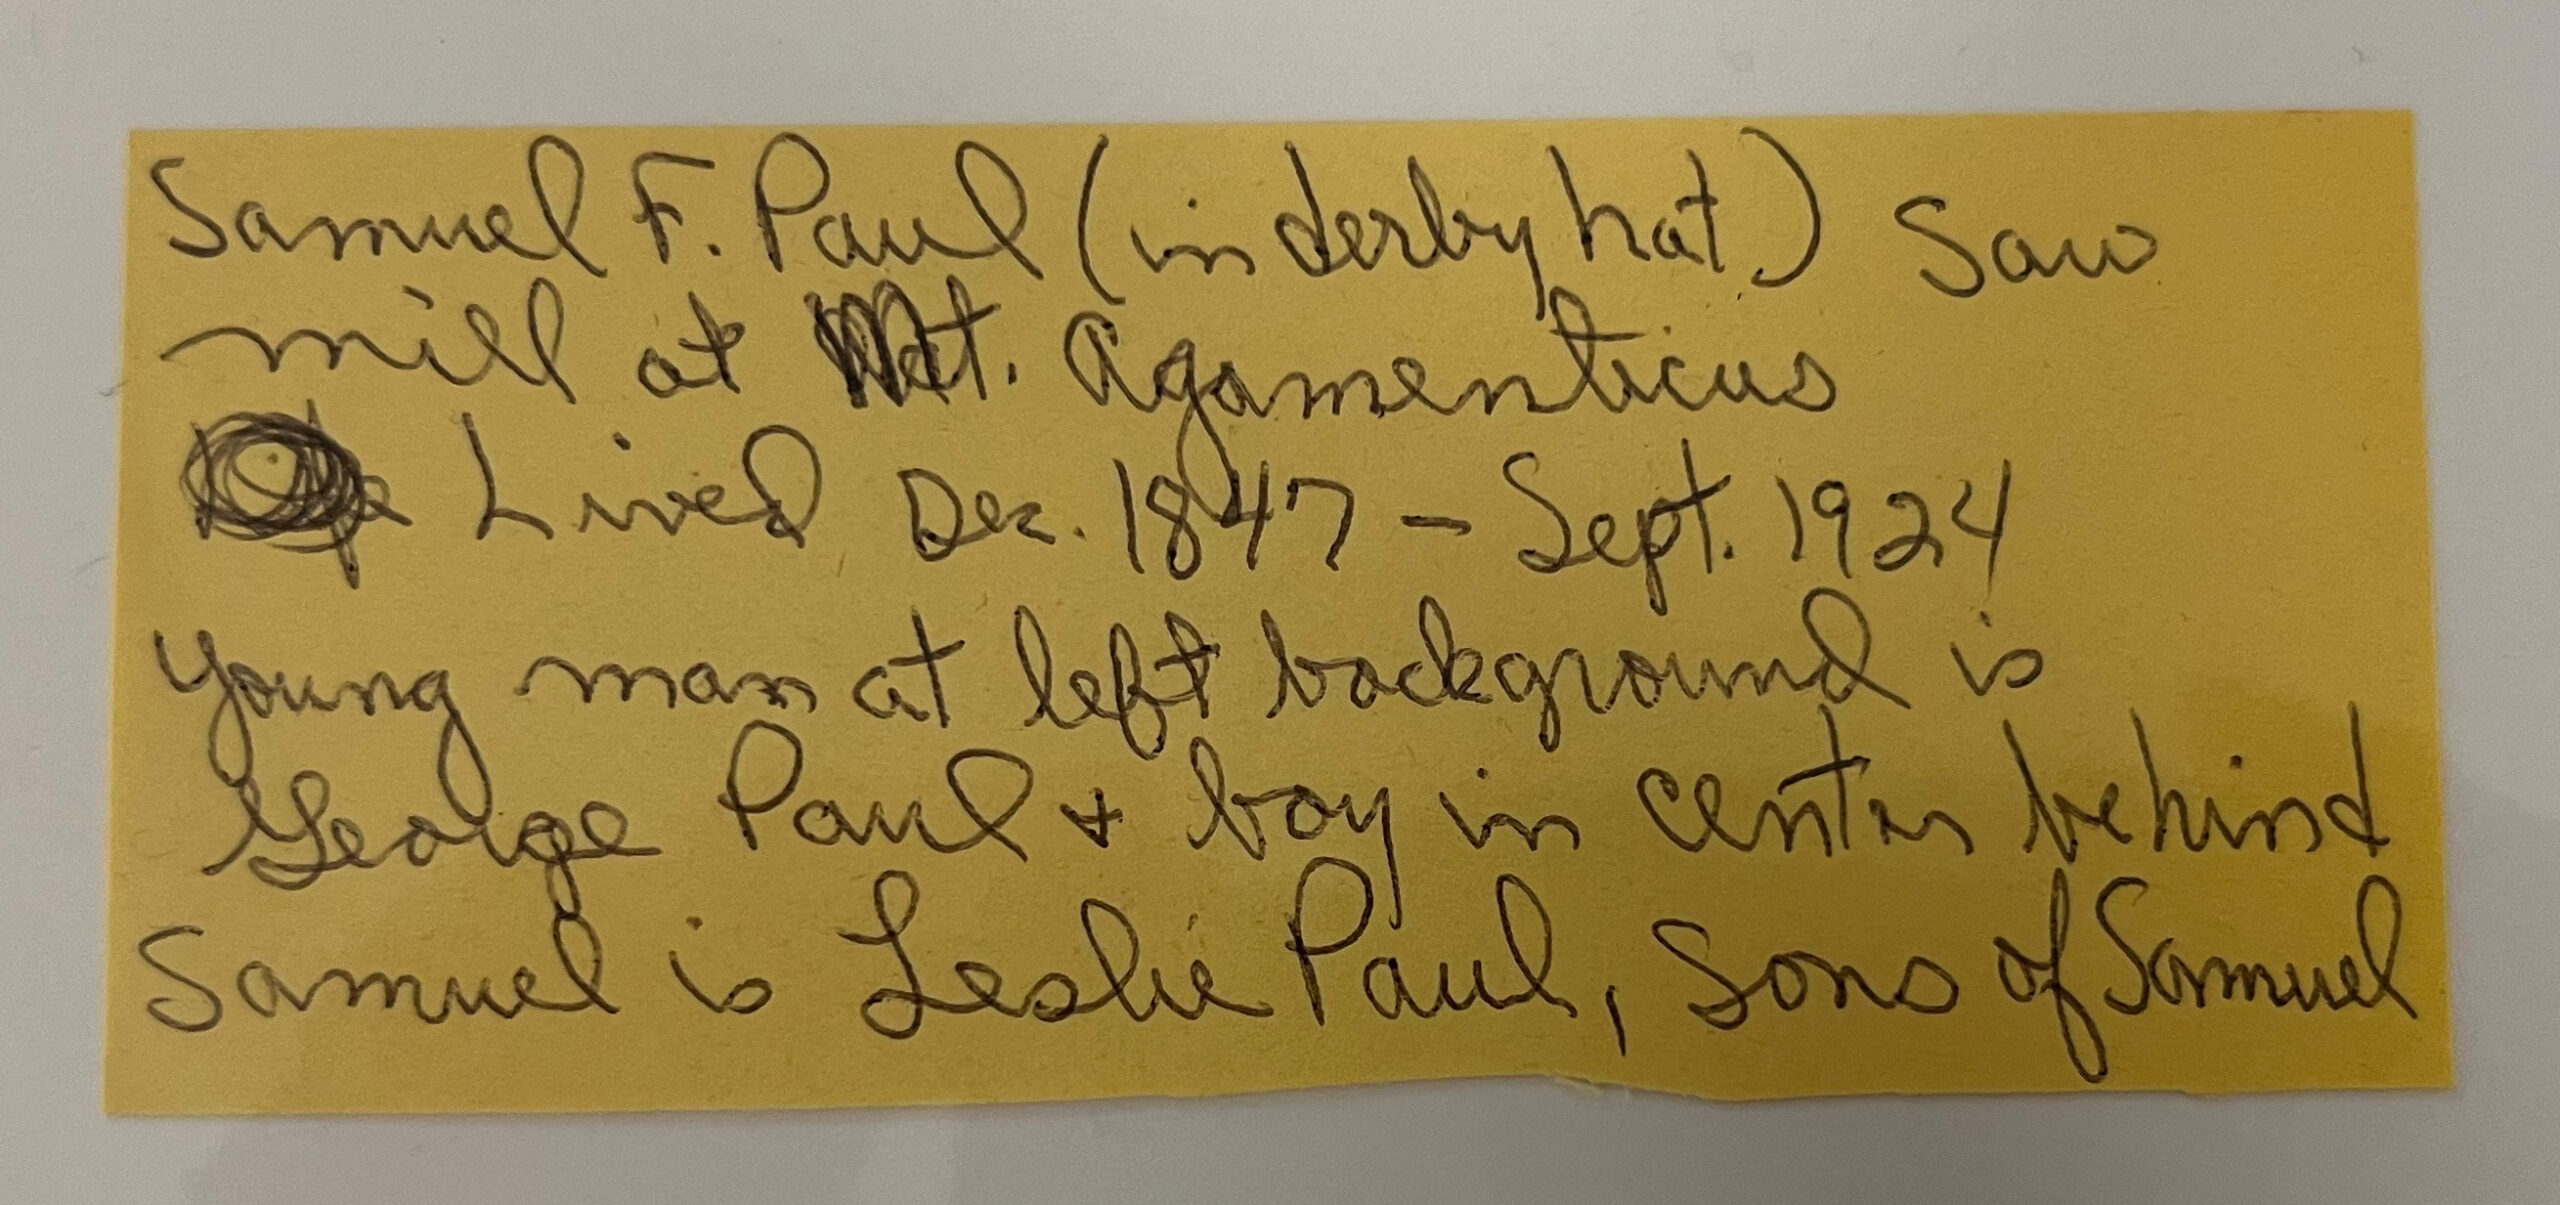 Samuel F. Paul (in derby hat) Saw
mill at Mt. Agamenticus
Lived Dec. 1847 - Sept. 1924
Young man at left background is
George Paul + boy in center behind
Samuel is Leslie Paul, sons of Samuel